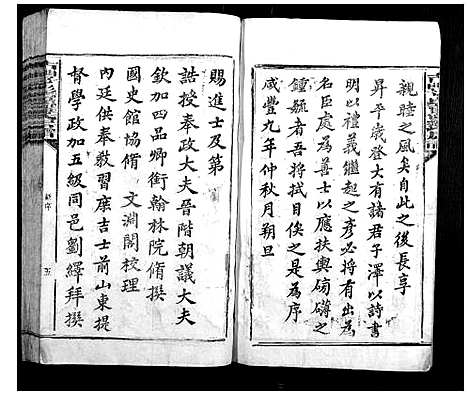 親睦之風矣自此之後長享
昇平歲登大有諸君子澤以詩書
明以禮義繼起之彥必將有出為
名臣處為善士以應扶輿磅礴之
鍾毓者吾將拭目俟之是為序
咸豐九年仲秋月朔旦
賜進士及第
誥授奉政大夫晉階朝議大夫
欽加四品卿銜翰林院脩撰
國史館協脩 文淵閣校理
內廷供奉教習庶吉士前山東提
督學政加五級同邑劉繹拜撰
序
五